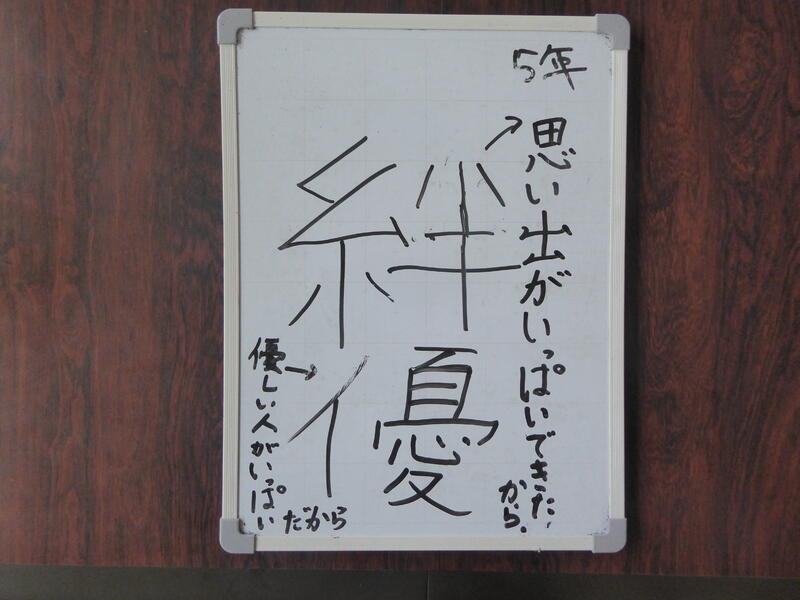 5年
思い出がいっぱいできた
から。
絆
優
優しい人がいっぱい
だから